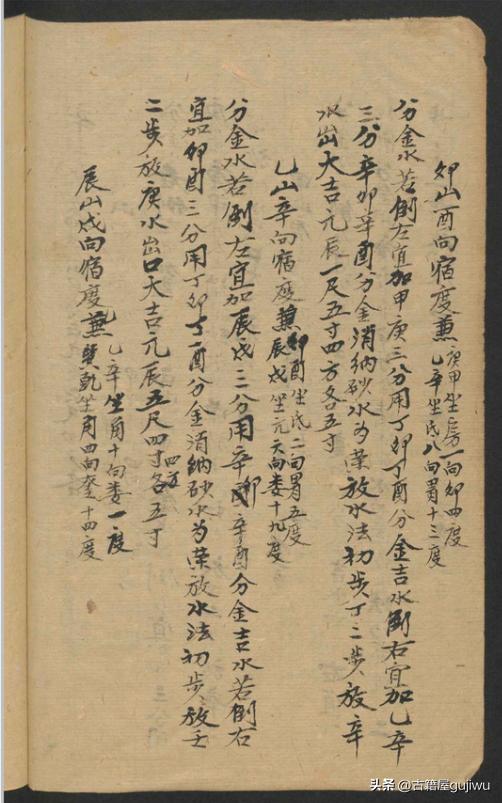 卯山酉向宿度兼庚甲坐房一向卯四度
乙辛坐氐八向胃十三度
分金水若倒左宜加甲庚三分用丁卯丁酉分金吉水倒右宜加乙辛
三分辛卯辛酉分金消納砂水为荣放水法初步丁二步放辛
水出大吉元辰一尺五寸四方各五寸
乙山辛向宿度兼卯酉坐氐二向胃五度
辰戌坐亢六向娄十九度
分金水若倒左宜加辰戌三分用辛卯辛酉分金吉水若倒右
宜加卯酉三分用丁卯丁酉分金消納砂水为荣放水法初步放壬
二步放庚水出口大吉元辰五尺四寸四方各五寸
辰山戌向宿度兼乙辛坐角十向娄一度
巽乾坐角四向奎十四度
头条 @古籍屋gujiwu